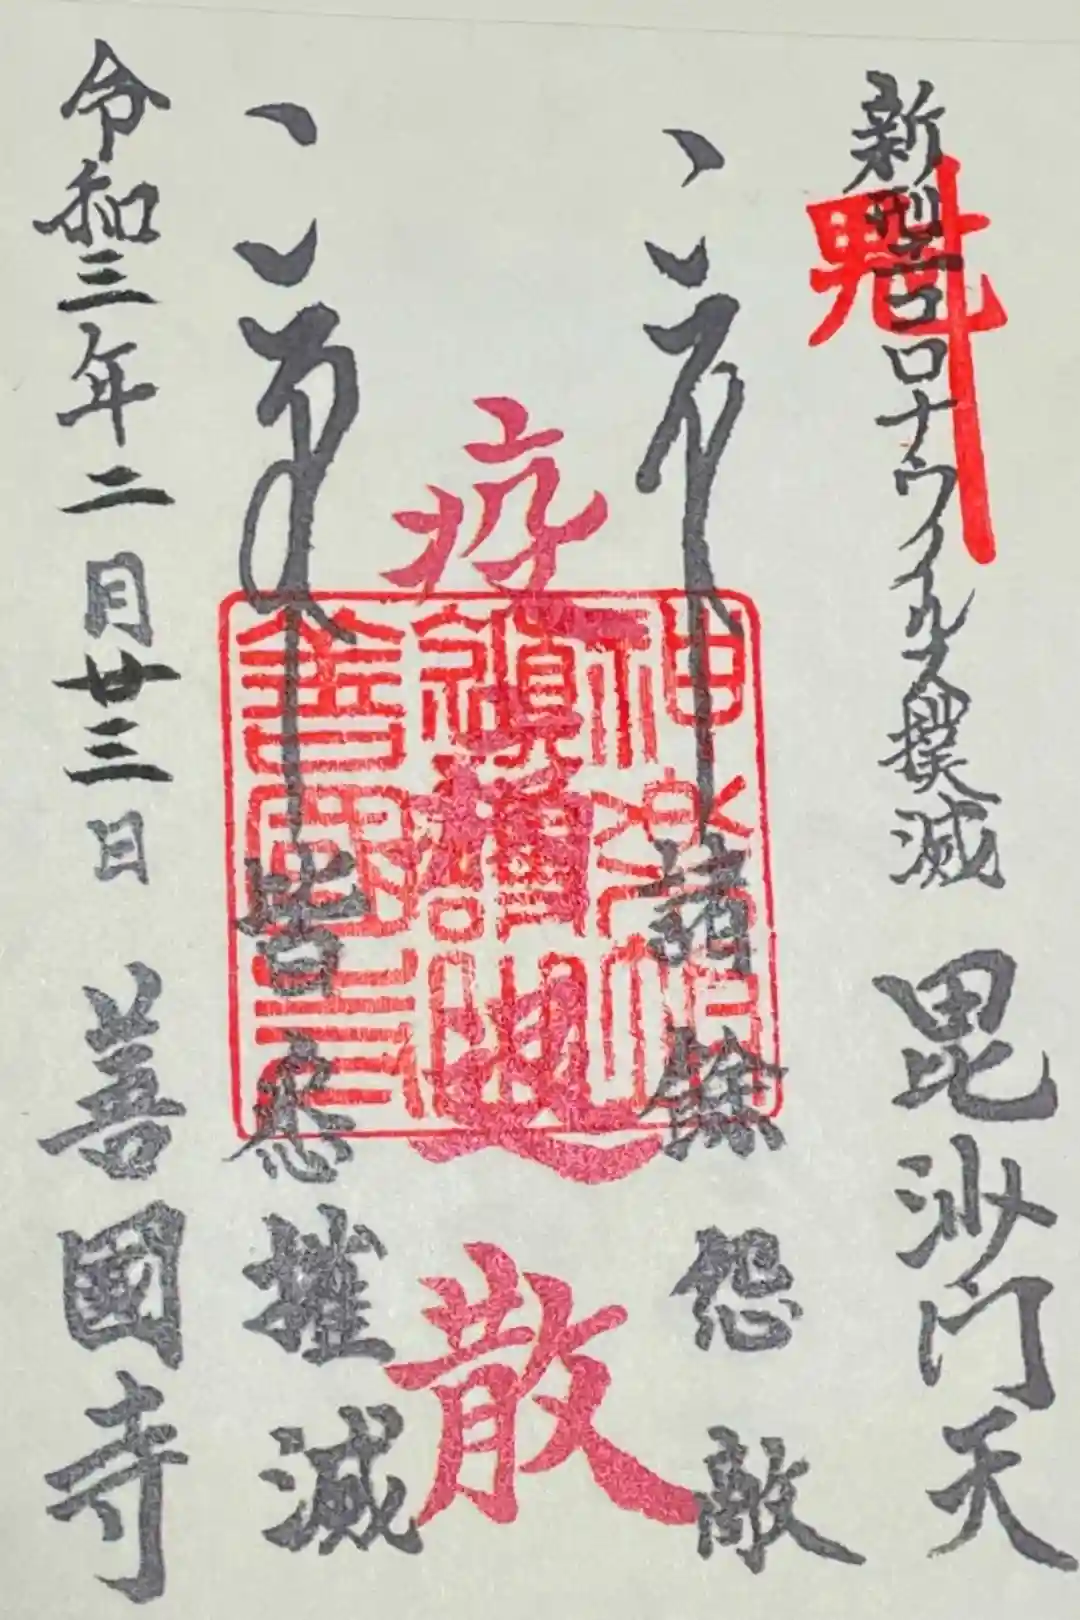 魁
新型コロナウイルス撲滅 毘沙門天
諸餘怨敵
疫 退散
皆悉摧滅
令和三年二月廿三日 善國寺
神楽坂
鎮護山
善國寺